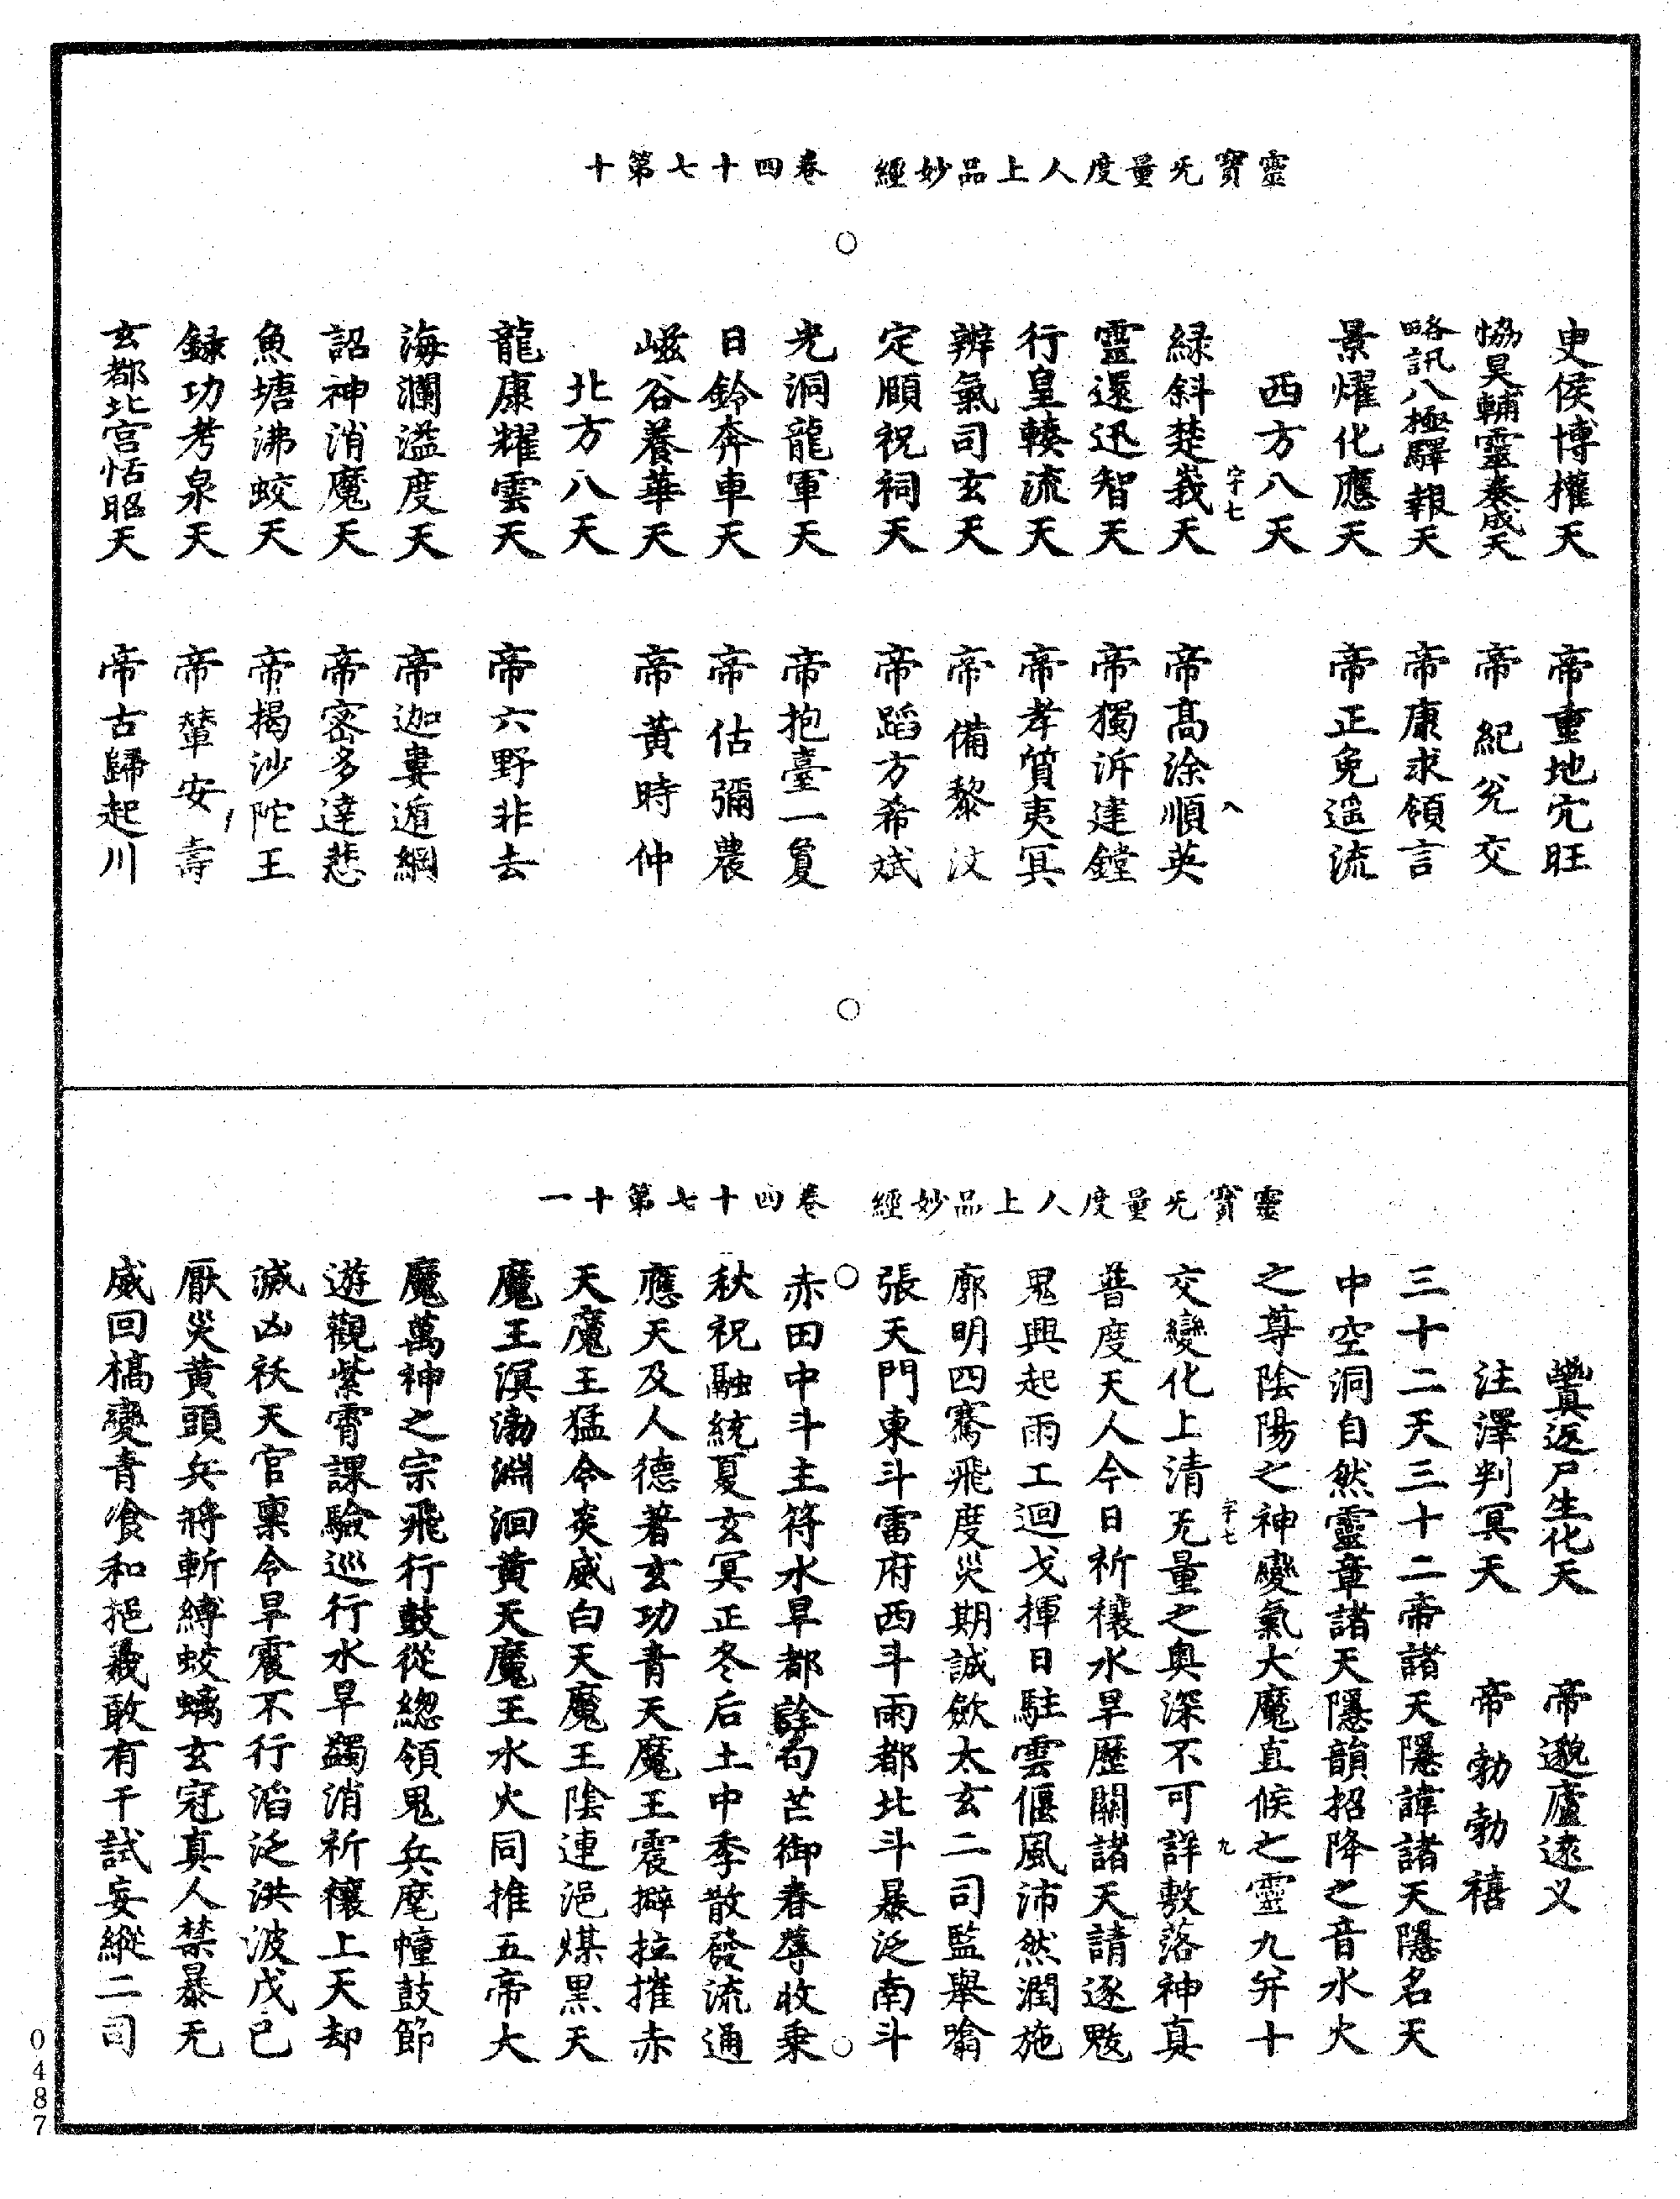 靈寶无量度人上品妙經　卷四十七第十
史侯博權天　帝重地宂旺
恊昊輔靈奏成天　帝紀兊交
略訊八極驛報天　帝康求領言
景燿化應天　帝正免遥流
西方八天
字七　八
緑斜楚峩天　帝髙涂順英
靈還迅智天　帝獨泝達鏜
行皇輳流天　帝孝質夷冥
辨氣司玄天　帝備黎汶
定願祝祠天　帝蹈方希斌
光洞龍軍天　帝抱臺一夐
日鈴奔車天　帝估彌農
嵫谷養華天　帝黄時仲
北方八天
龍康耀雲天　帝六野非去
海瀾溢度天　帝迦婁遁綱
詔神消魔天　帝密多達悲
魚塘沸蛟天　帝揭沙陀王
録功考泉天　帝輦安壽
玄都北宫恬昭天　帝古歸起川
靈寶无量度人上品妙經　卷四十七第十一
真返尸生化天　帝邈廬遠义
注澤判冥天　帝勃勃禧
三十二天三十二帝諸天隱諱諸天隱名天
中空洞自然靈章諸天隱韻招降之音水火
之尊陰陽之神變氣大魔直候之靈九弁十
字七　九
交變化上清无量之奥深不可詳敷落神真
普度天人今日祈禳水旱歷關諸天請逐魃
鬼興起雨工迴戈揮日駐雲偃風沛然潤施
廓明四騫飛度災期誠歛太玄二司監舉翕
張天門東斗雷府西斗雨都北斗暴泛南斗
赤田中斗主符水旱都詮句芒御春蓐收乗
秋祝融統夏玄冥正冬后土中季散發流通
應天及人德著玄功青天魔王震擗拉摧赤
天魔王猛令炎威白天魔王陰連浥煤黒天
魔王溟渤淵洄黄天魔王水火同推五帝大
魔萬神之宗飛行鼓從緫領鬼兵麾幢鼓節
遊觀紫霄課驗巡行水旱蠲消祈禳上天却
滅凶祅天官稟令旱震不行滔泛洪波戊己
厭災黄頭兵將斬縛蛟螭玄冠真人禁暴无
威回槁變青飡和挹羲敢有干試妄縱二司
0487